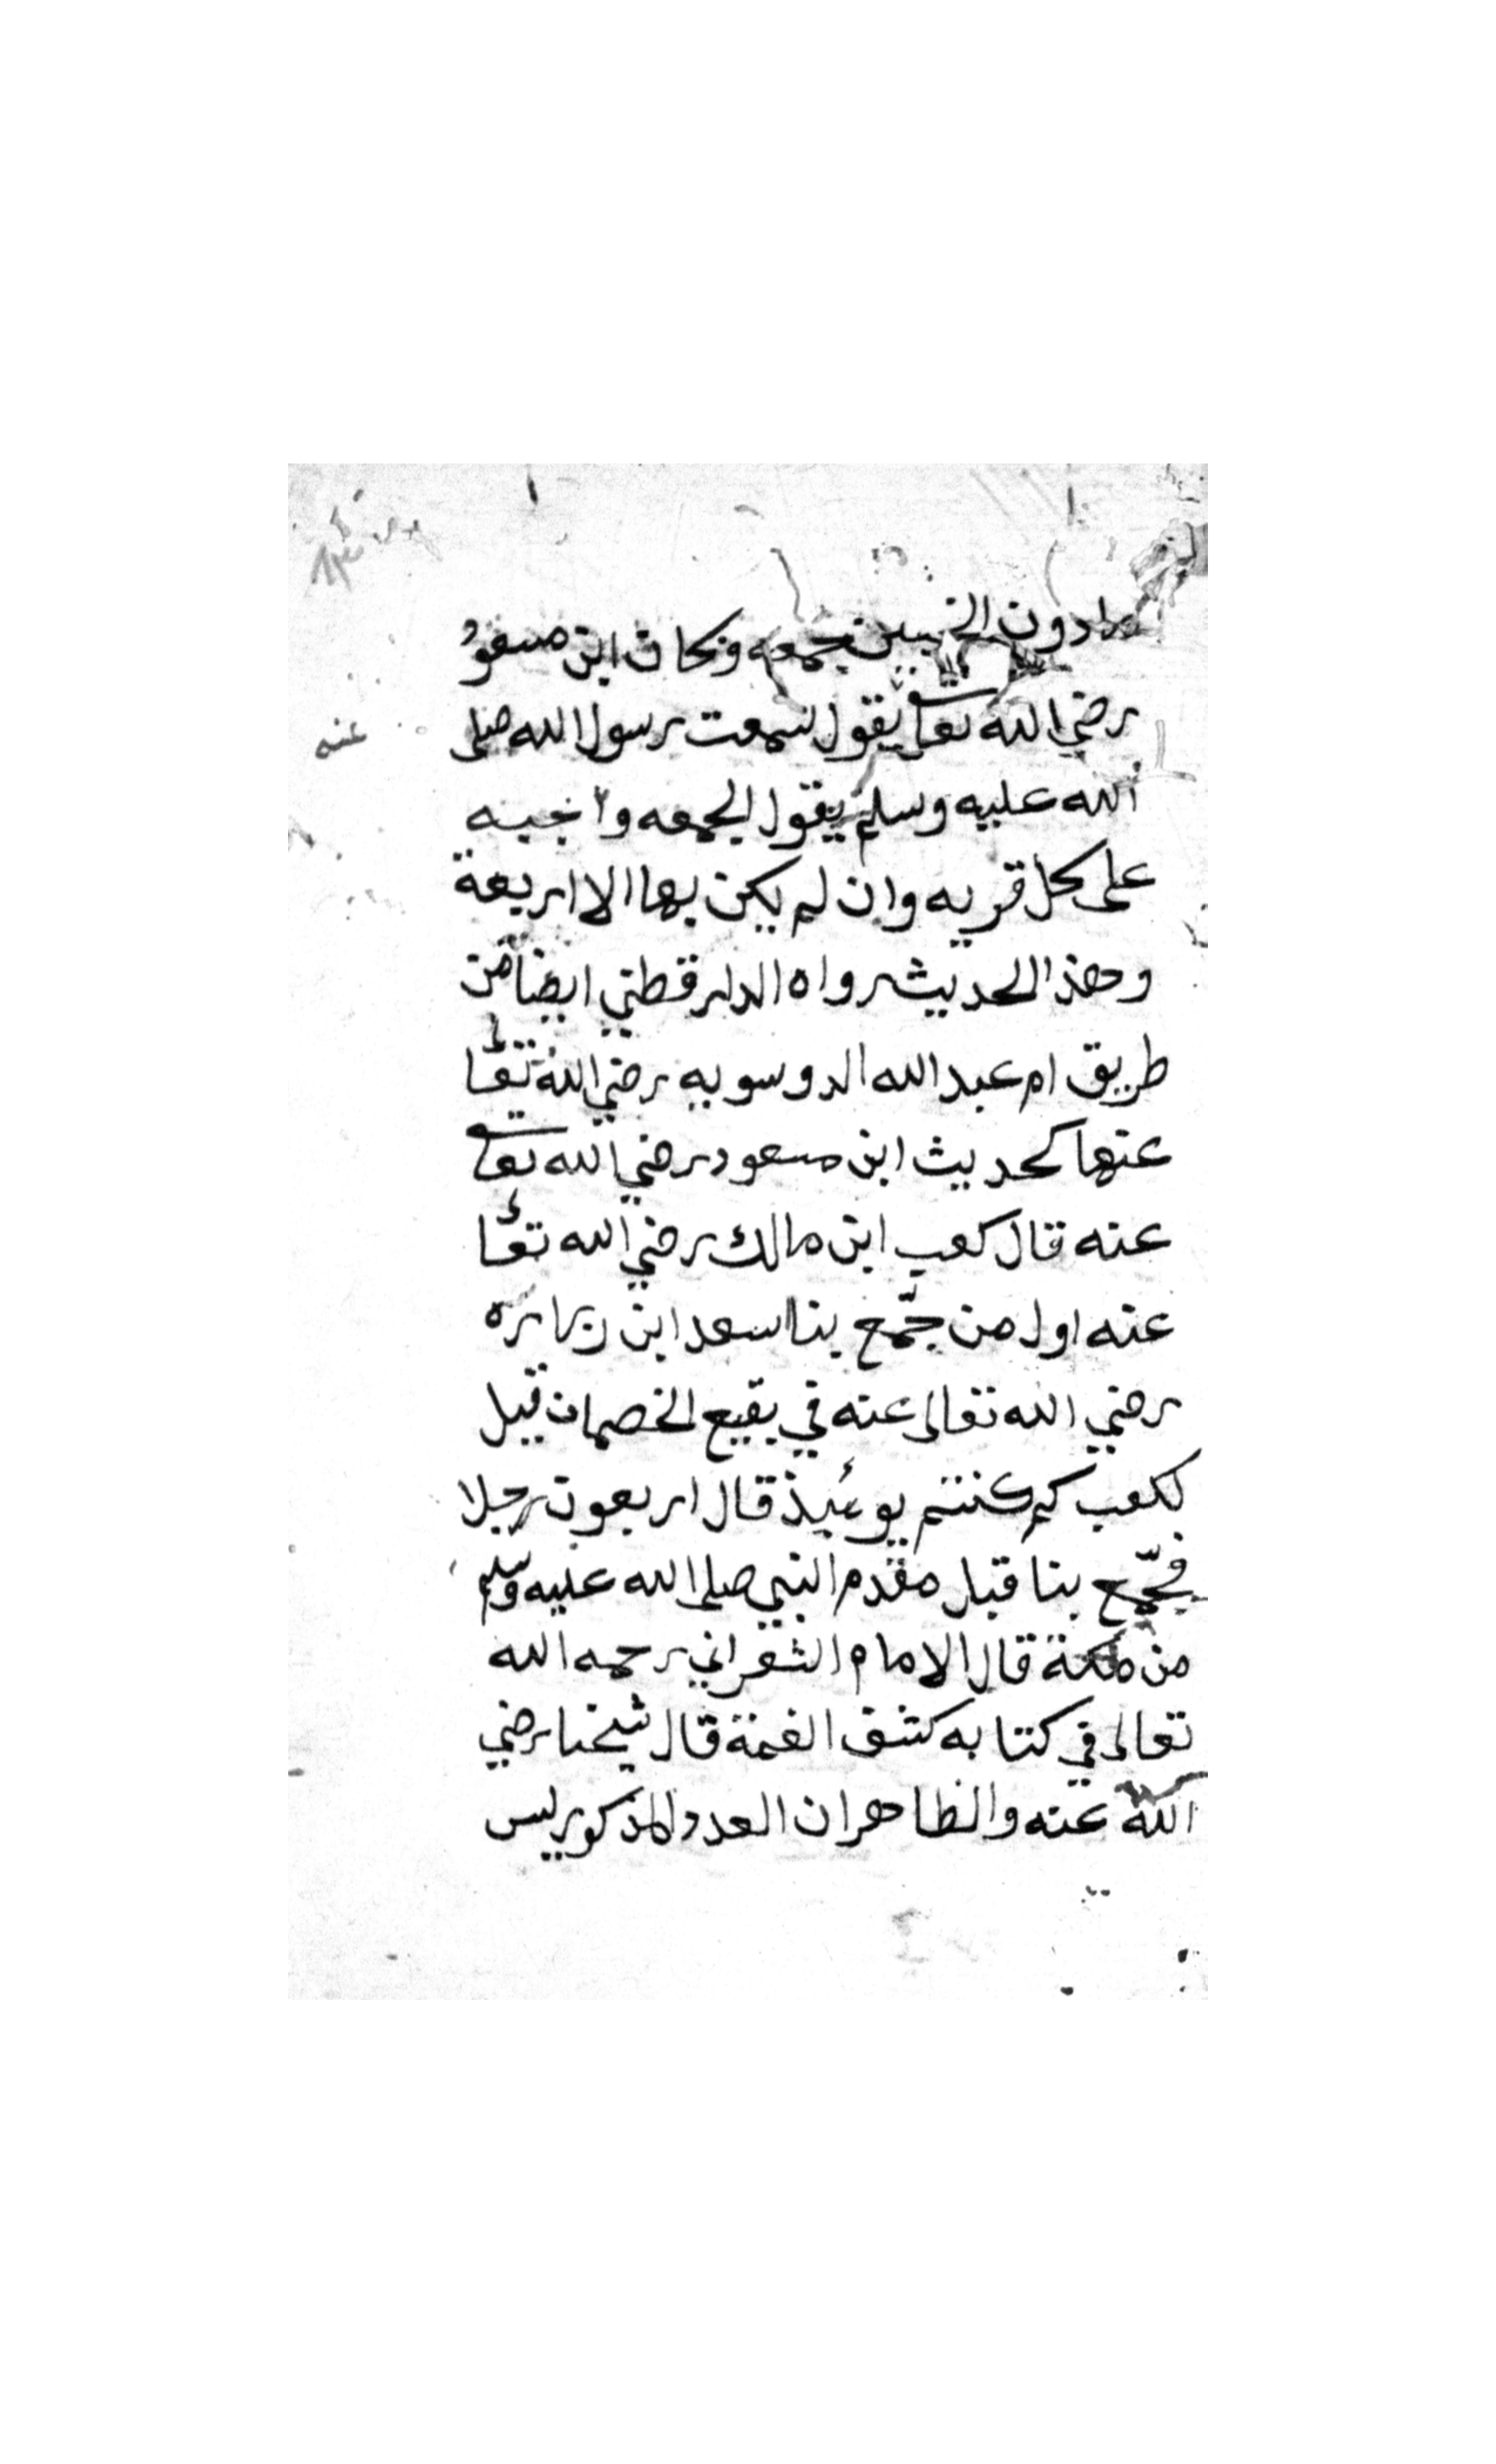 مادون الخمسين جمعه وكان ابن مسعود
رضي الله تعا يقول سمعت رسول الله صلى
عنه
الله عليه وسلم يقول الجمعه واجبه
على كل قريه وان لم يكن بها الا اربعة
وهذا الحديث رواه الدارقطني ايضا من
طريق ام عبد الله الدوسويه رضي الله تعا
عنها كحديث ابن مسعود رضي الله تعا
عنه قال كعب ابن مالك رضي الله تعا
عنه اول من جمّع بنا اسعد ابن زراره
رضي الله تعالى عنه في بقيع الخصمات قيل
لكعب كم كنتم يومئيذ قال اربعون رجلا
فجمّع بنا قبل مقدم النبي صلى الله عليه وسلم
من مكة قال الامام الشعراني رحمه الله
تعالى في كتابه كشف الغمة قال شيخنا رضي
الله عنه والظاهر ان العدد المذكور ليس